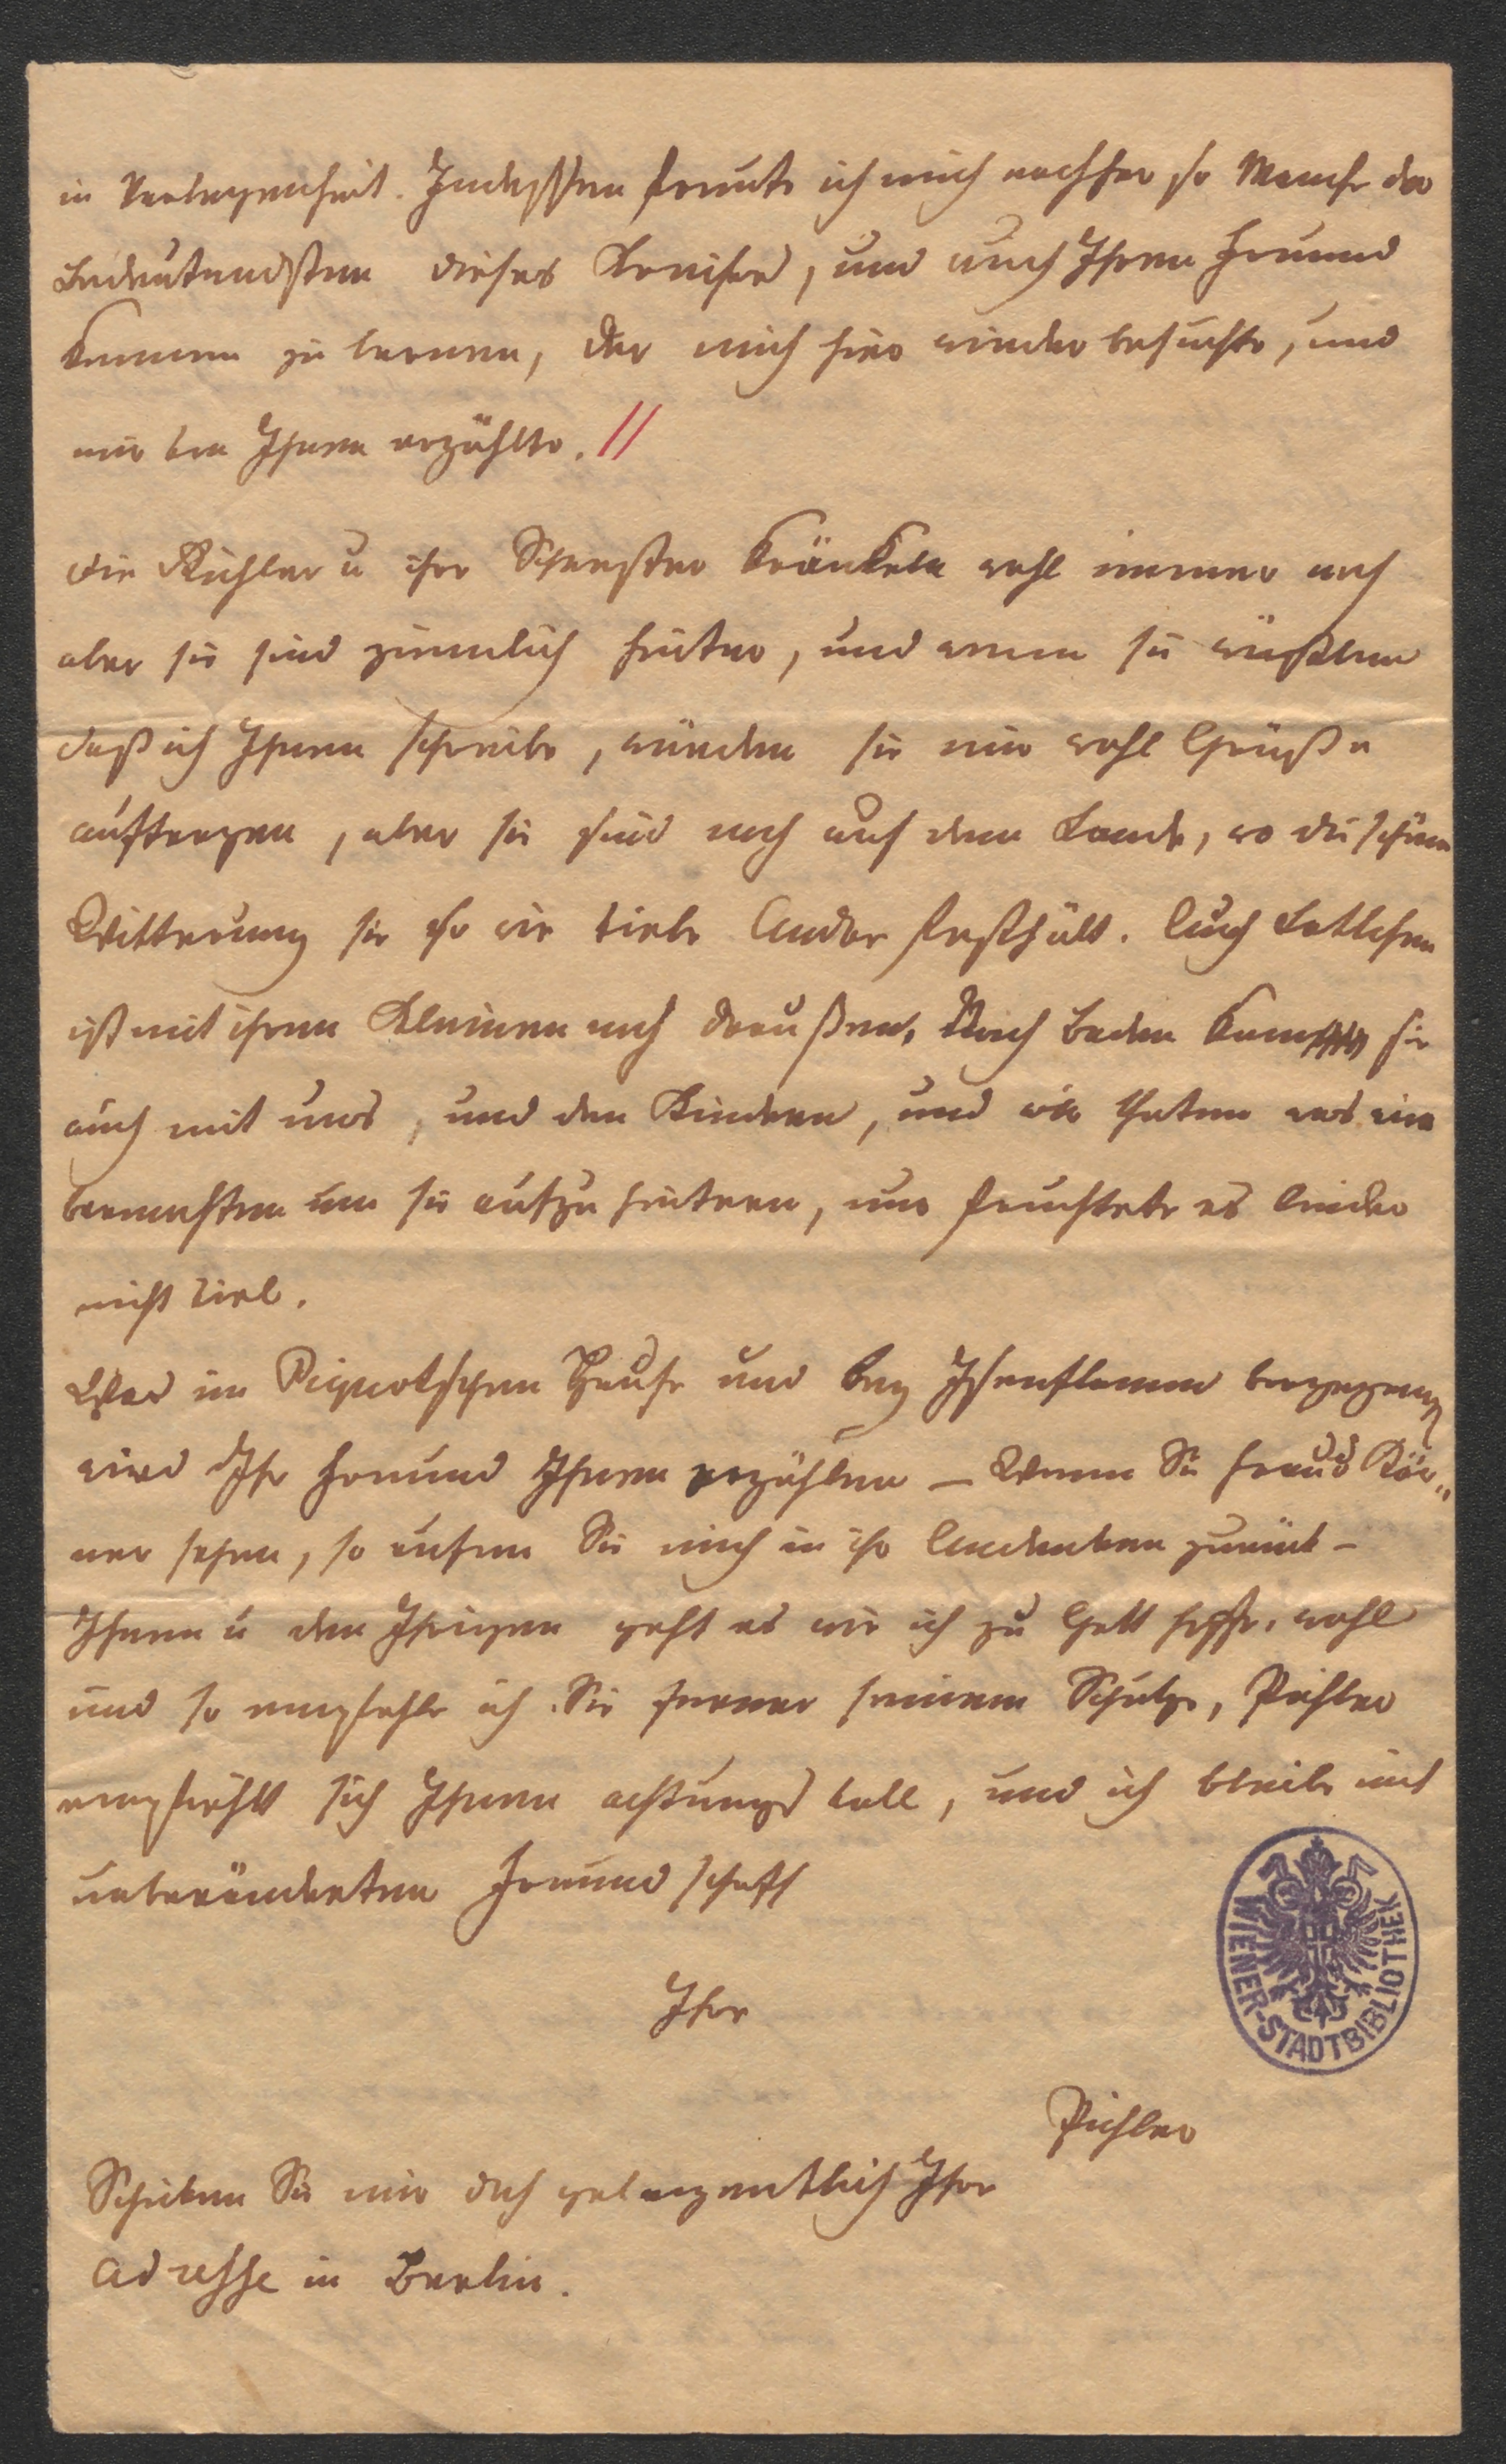 in Verlegenheit. Indessen freute ich mich nachher so Manche der
Bedeutendsten dieses Kreises, und auch Ihren Freund
kennen zu lernen, der mich hier wieder besuchte, und
mir von Ihnen erzählte. //
Die Richler u ihre Schwester kränkeln wohl immer noch
aber sie sind ziemlich heiter, und wenn sie wüßten
daß ich Ihnen schreibe, würden sie mir wohl Grüße
auftragen, aber sie sind noch auf dem Lande, wo die schöne
Witterung sie so wie viele Andre festhält. Auch
ist mit ihren Kleinen noch draußen. Nach Baden kam sie
auch mit uns, und den Kindern, und wir thaten was wir
vermochten um sie aufzuheitern, nur fruchtete es leider
nicht viel.
Was im Piquotschen Hause und bey Isenflamm vorgegangen
wird Ihr Freund Ihnen erzählen – Wenn Sie Frau v Kör„
ner sehen, so rufen Sie mich in ihr Andenken zurück –
Ihnen u den Ihrigen geht es wie ich zu Gott hoffe, wohl
und so empfehle ich Sie ferner seinem Schutze, Pichler
empfiehlt sich Ihnen achtungsvoll, und ich bleibe mit
unveränderter Freundschaft
Ihre
Pichler
Schicken Sie mir doch gelegentlich Ihre
Adresse in Berlin.
WIENER-STADTBIBLIOTHEK